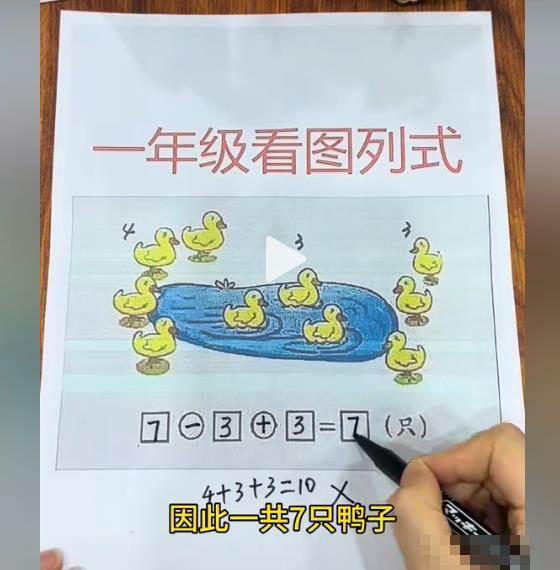 一年级看图列式
4 3 3
7-3+3=7(只)
4+3+3=10 ×
因此一共7只鸭子